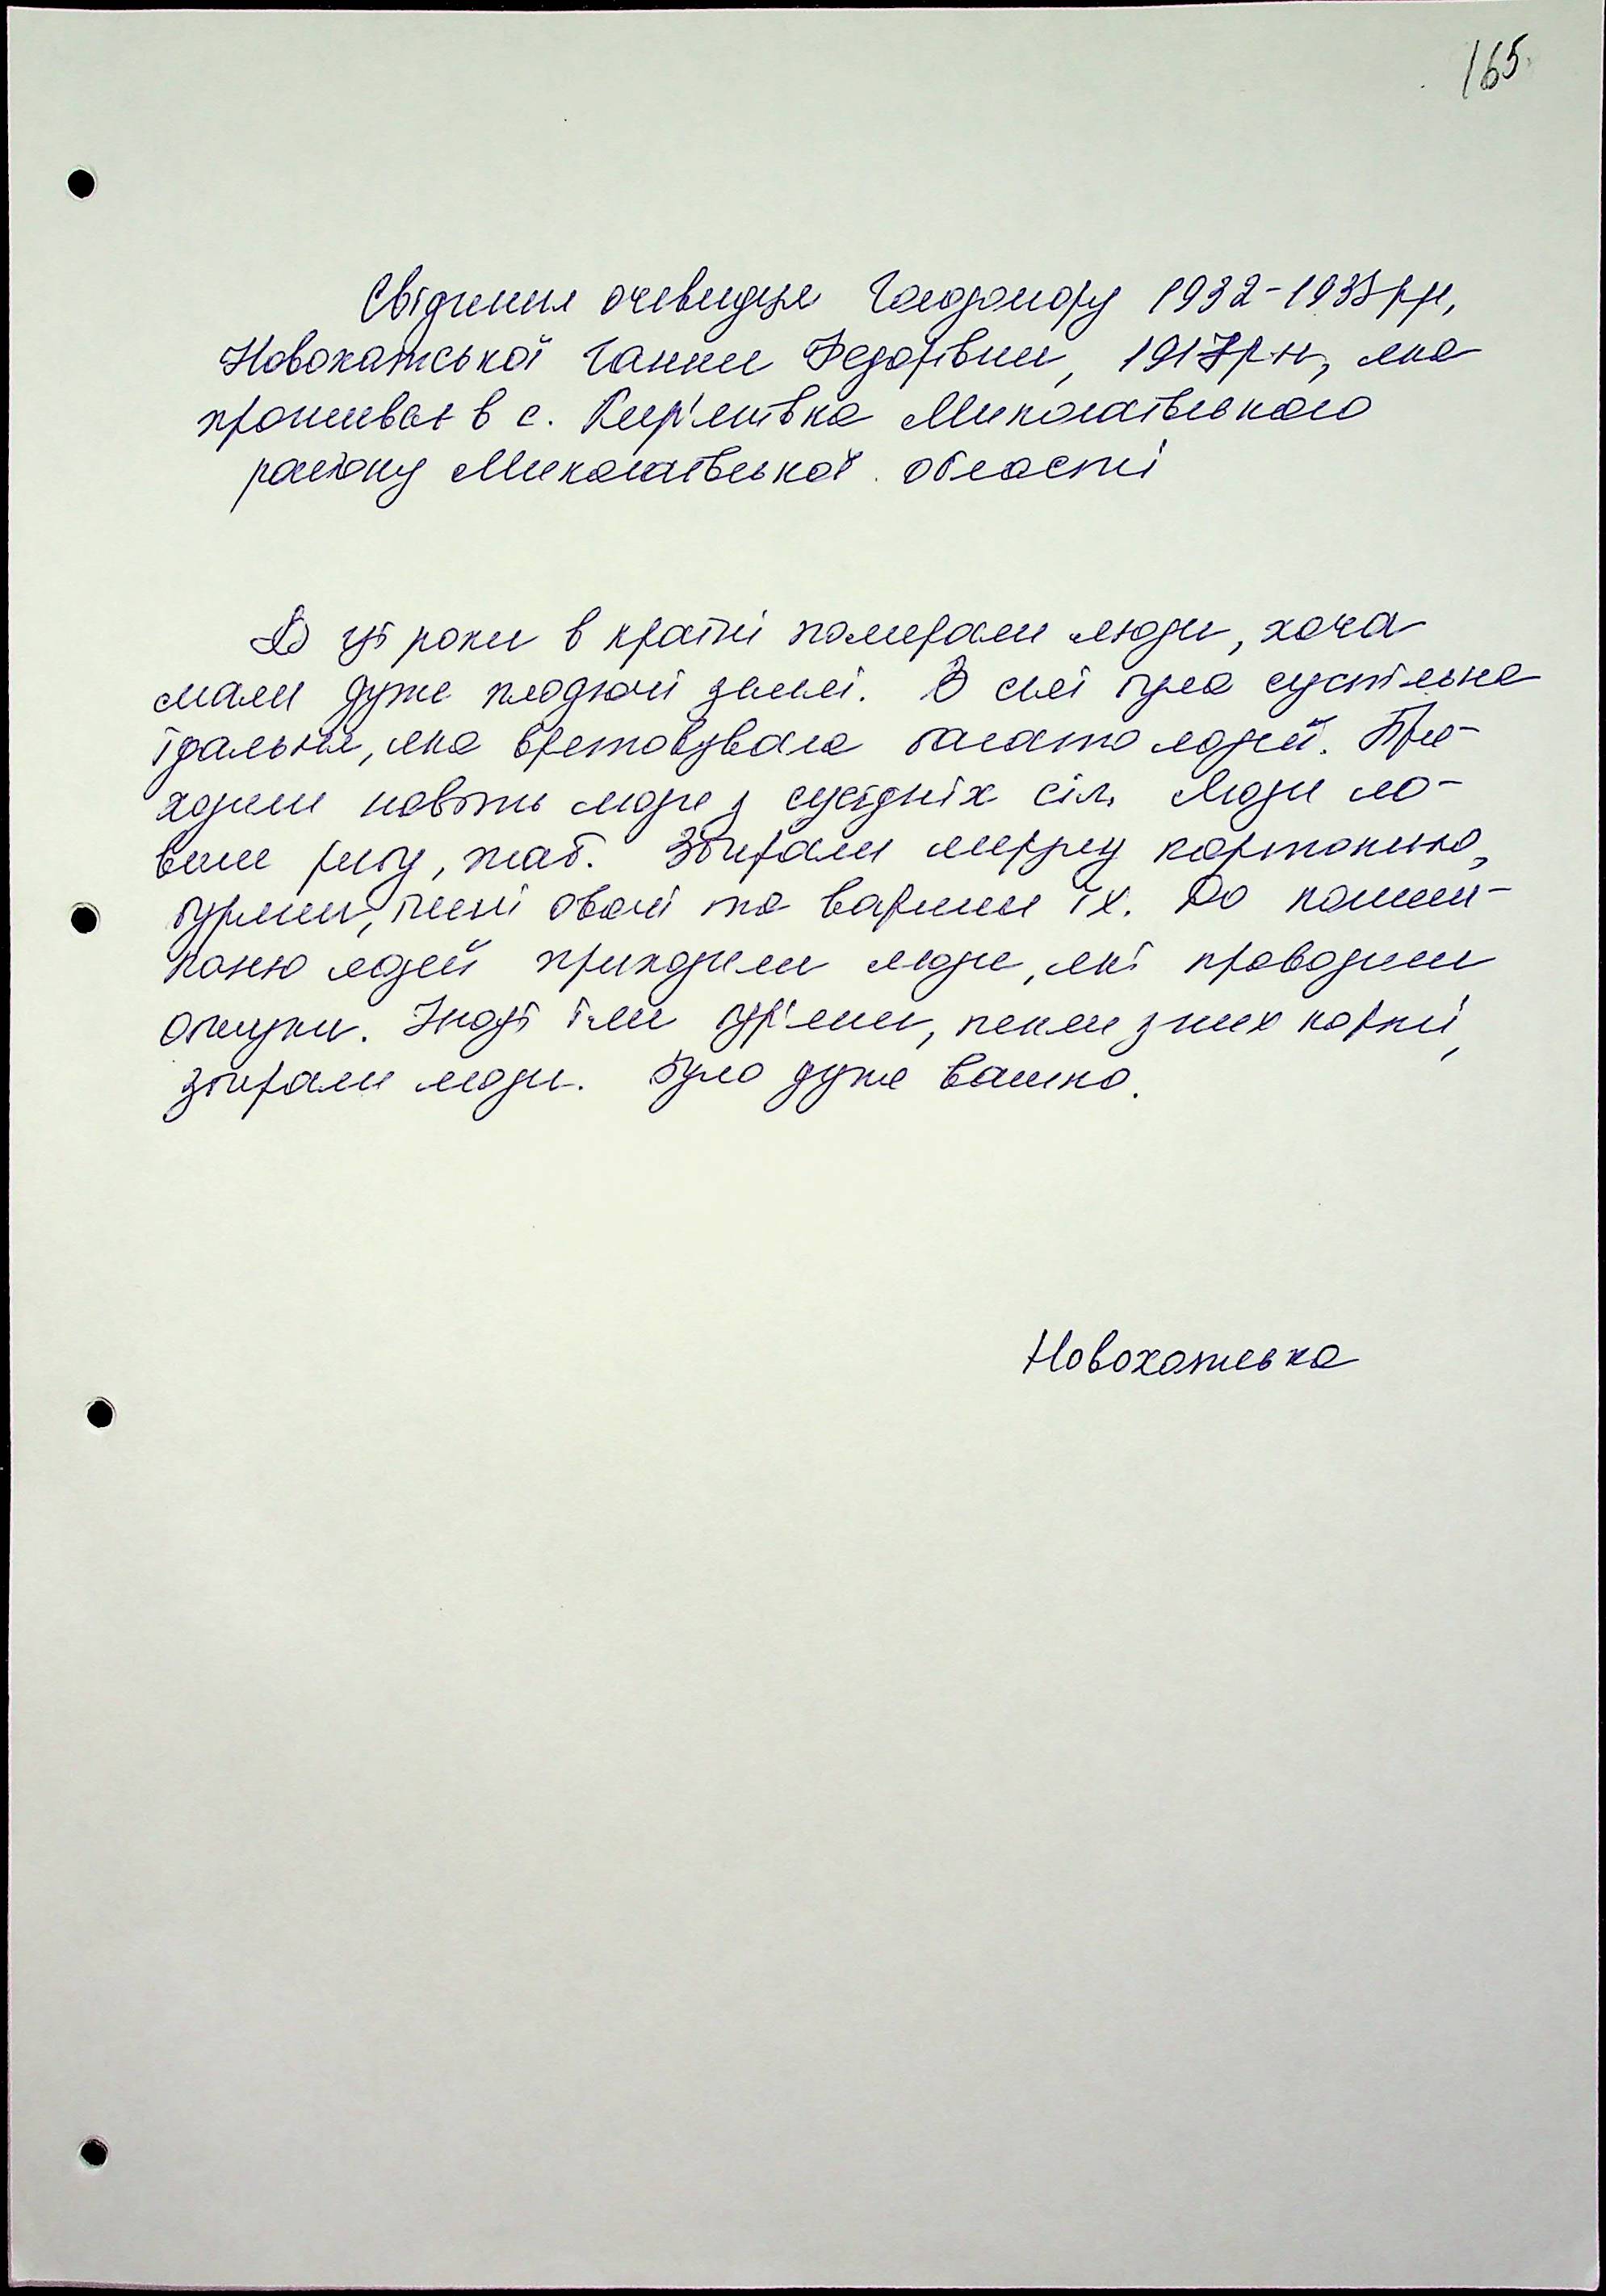 165.
Свідчення очевидця Голодомору 1932-1933 рр,
Новохатської Ганни Федорівни, 1917 р н, яка
проживає в с. Кир'яківка Миколаївського
району Миколаївської області
В ці роки в країні помирали люди, хоча
мали дуже плодючі землі. В селі була суспільна
їдальня, яка врятовувала багато людей. При-
ходили навіть люди з сусідніх сіл. Люди ло-
вили рибу, жаб. Збирали мерзлу картоплю,
буряки, гнилі овочі та варили їх. До
людей приходили люди, які проводили
обшуки. Іноді їли бур'яни, пекли з них коржі,
збирали люди. Було дуже важко.
Новохатська